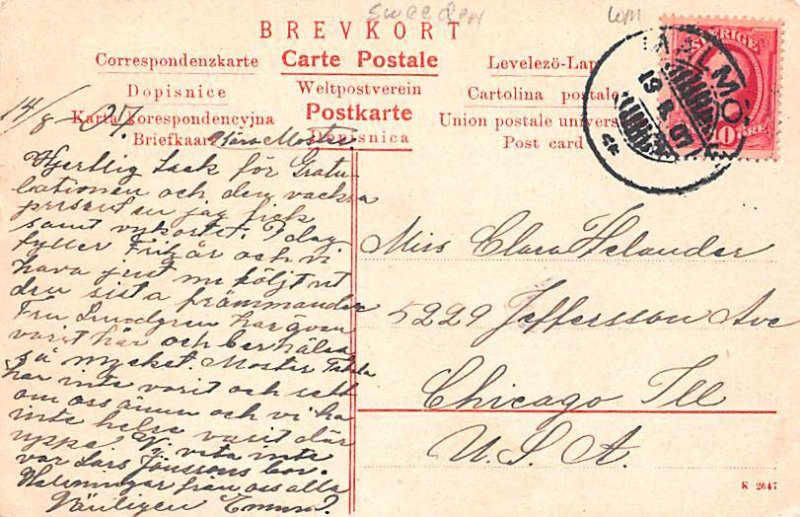 Sweeden
Wm
BREVKORT
Correspondenzkarte
Carte Postale
Levelező-Lap
Dopisnice
Weltpostverein
Cartolina postale
Karta korespondencyjna
Postkarte
Union postale univers
Briefkaart
Dopisnica
Post card
SVERIGE
ÖRE
MALMÖ
19 8 07
14/8 - 07.
Kära Moster
Hjertlig tack för Gratu-
lationen och den vackra
presenten jag fick
samt vykortet. I dag
fyller Fritz år och vi
hava just nu följt ut
den sista främmanden
Fru Lundgren har även
varit här och ber hälsa
så mycket. Moster
har inte varit och sett
om oss ännu och vi ha
inte heller varit där
uppe. Vi veta inte
var Lars Jönssons bor.
Helsningar från oss alla
Vänligen
Miss Clara Helander
5229 Jeffersson Ave
Chicago Ill
U. S. A.
K 2647